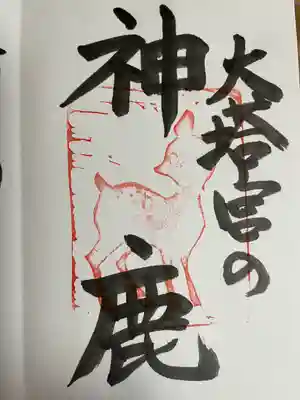 大塔宮の
神鹿